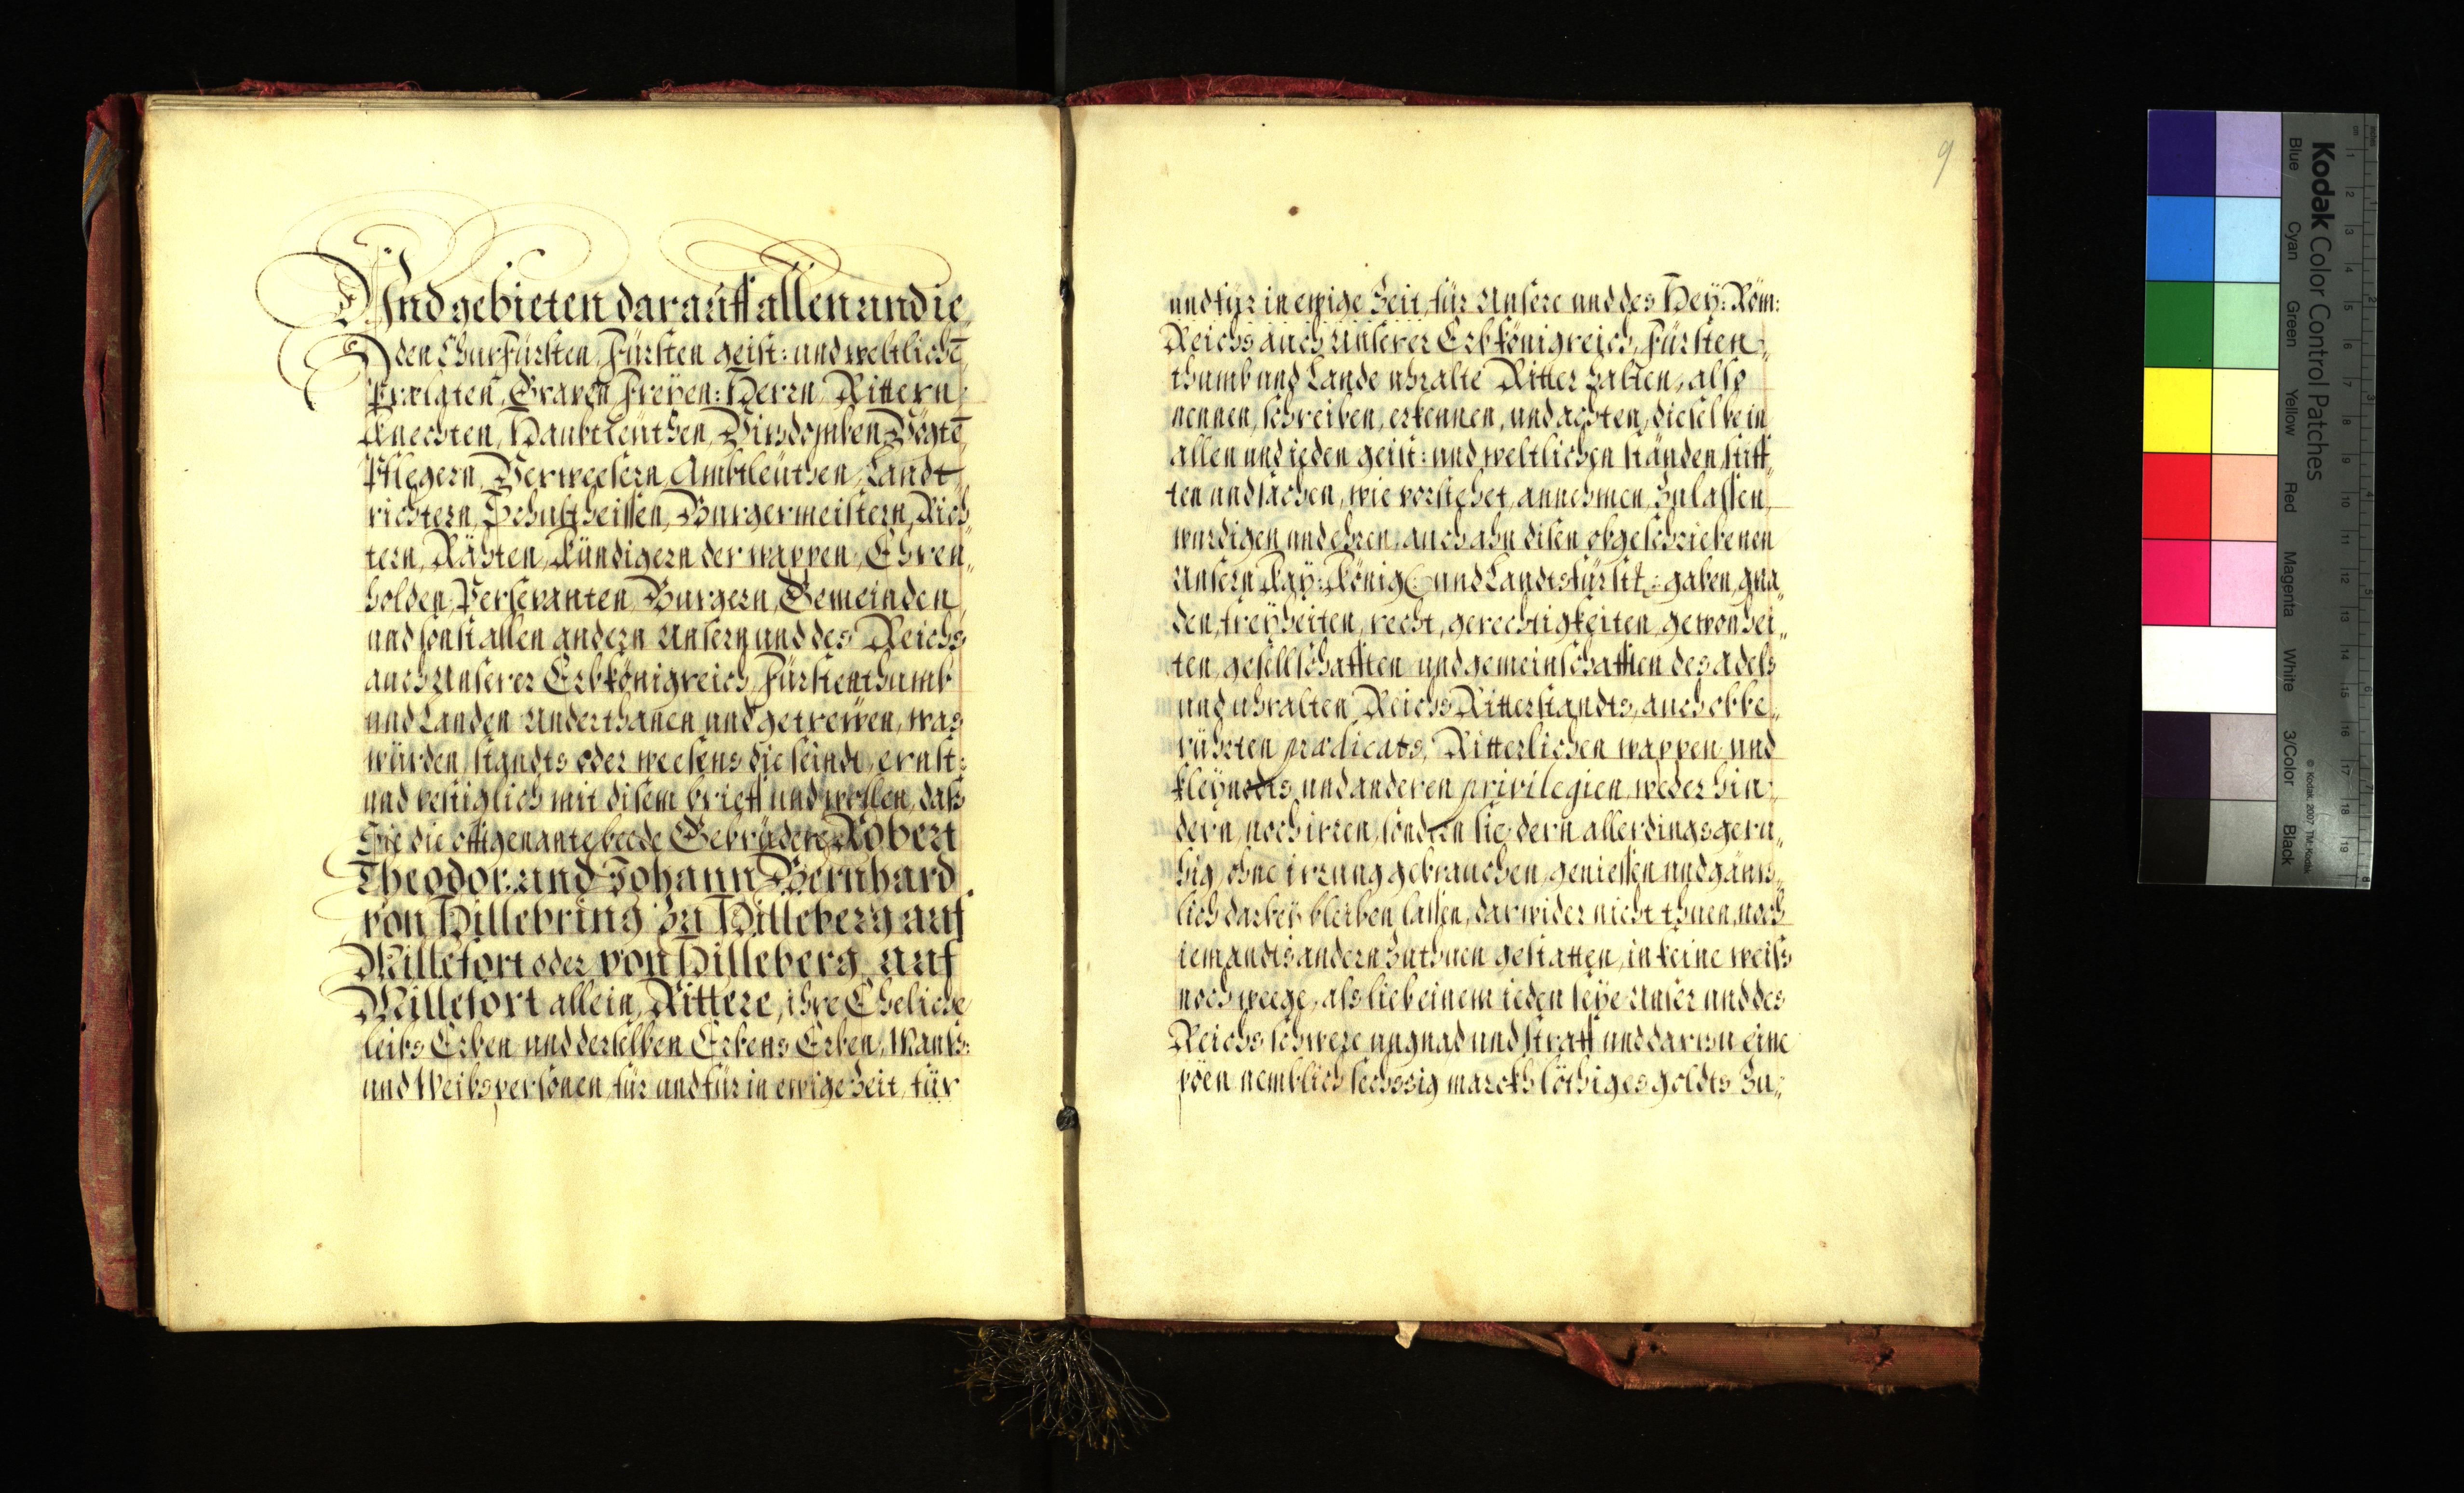 Und gebieten darauff allen und ie„
den Churfürsten, Fürsten geist: und weltlichē
Prælaten, Graven, Freyen: Herrn, Rittern,
Knechten, Haubtleüthen, Vizdomben, Vögtē
Pflegern, Verweesern, Ambtleüthen, Landt„
richtern, Schultheissen, Burgermeistern, Rich„
tern, Räthen, Kündigern der wappen, Ehren„
holden, Persevanten, Burgern, Gemeinden
und sonst allen andern Unsern und des Reichs
auch Unserer Erbkönigreich, Fürstenthumb
und Landen Underthanen und getrewen, was
würden, standts oder weesens die seindt, ernst:
und vestiglich mit disem brieff und wollen, daß
Sie die offtgenante beede Gebrüdere Robert
Theodor: und Johann Bernhard
von Hillebring zu Hilleberg auf
Millefort oder von Hilleberg auf
Millefort allein, Rittere, ihre Eheliche
leibs Erben und derselben Erbens Erben, Manß:
und Weibspersonen, für und für in ewige zeit, für
9
und für in ewige zeit, für Unsere und des Hey: Röm:
Reichs auch Unserer Erbkönigreich, Fürsten„
thumb und Lande uhralte Ritter halten, also
nennen, schreiben, erkennen, und achten, dieselbe in
allen und ieden geist: und weltlichen ständen, stiff„
ten und sachen, wie vorstehet, annehmen, zulassen,
wurdigen und ehren, auch ahn disen obgeschriebenen
Unsern Kay: König: und Landtsfürstl: gaben, gna„
den, freyheiten, recht, gerechtigkeiten, gewonhei„
ten, gesellschafften und gemeinschafften des Adels
und uhralten Reichs Ritterstandts, auch obbe„
rührten prædicats, Ritterlichen wappen und
kleynodts, und anderen privilegien, weder hin„
dern, noch irren, sondern sie, dern allerdings geru„
hig, ohne irrung gebrauchen, geniessen und gäntz„
lich darbey bleiben lassen, darwider nicht thuen, noch
iemandts andern zuthuen gestatten, in keine weiß
noch weege, als lieb einem ieden seye Unser und des
Reichs schwere ungnad und straff und darzu eine
pöen nemblich sechszig marckh löthiges goldts zu„
Kodak Color Control Patches
Blue Cyan Green Yellow Red Magenta White 3/Color Black
© Kodak, 2007 TM: Kodak